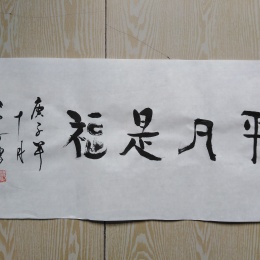 平凡是福
庚子年
十月